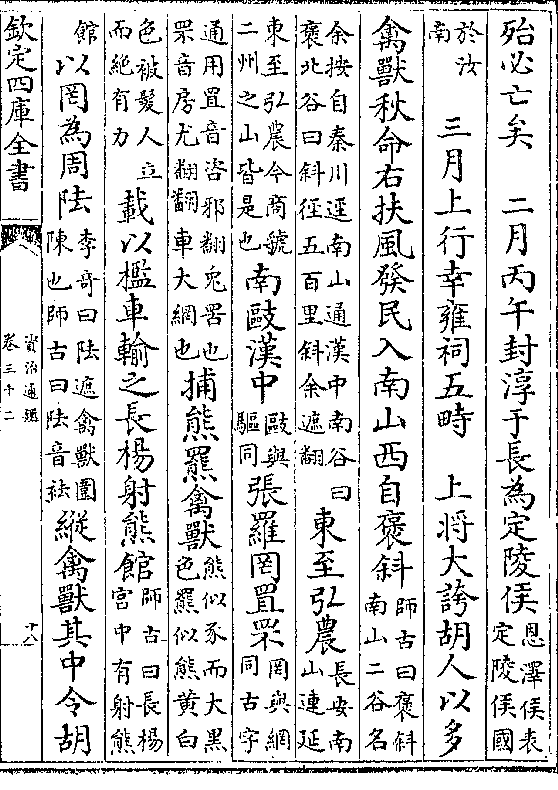 殆必亡矣　二月丙午封淳于長為定陵侯恩澤侯表定陵侯國
於汝南　三月上行幸雍祠五畤　上將大誇胡人以多
禽獸秋命右扶風發民入南山西自褒斜師古曰褒斜南山二谷名
余按自秦川逕南山通漢中南谷曰褒北谷曰斜徑五百里斜余遮翻東至弘農長安南山連延
東至弘農今商虢二州之山皆是也南敺漢中敺與驅同張羅罔罝罘罔與網同古字
通用罝音咨邪翻兎罟也罘音房尤翻翻車大網也捕熊羆禽獸熊似豕而大黑色羆似熊黄白
色被髮人立而絶有力載以檻車輸之長楊射熊館師古曰長楊宫中有射熊
館以罔為周阹李奇曰阹遮禽獸圍陳也師古曰阹音祛縱禽獸其中令胡
欽定四庫全書
資治通鑑
卷三十二
十八